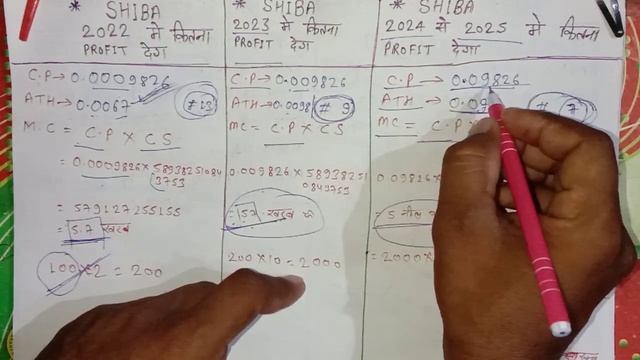 * SHIBA
2022 मे कितना
PROFIT देगा
C.P → 0.0009826
ATH → 0.0067
#13
M.C = C.P X CS
= 0.0009826 X 58938251084
3753
= 579127255155
= 5.7 खरब
100 X 2 = 200
* SHIBA
2023 मे कितना
PROFIT देगा
C.P → 0.009826
ATH → 0.0098
# 9
MC = C.P X CS
0.009826 X 589382510
849753
= 57 खरब
200 X 10 = 2000
* SHIBA
2024 से 2025 मे
कितना
PROFIT देगा
C.P → 0.09826
ATH → 0.09
# 7
MC = C.P X
0.09826 X
= 5 नील
= 2000 X